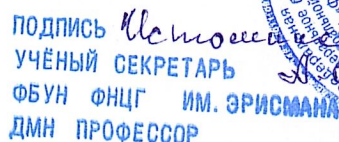 ПОДПИСЬ
УЧЁНЫЙ СЕКРЕТАРЬ
ФБУН ФНЦГ ИМ. ЭРИСМАНА
ДМН ПРОФЕССОР